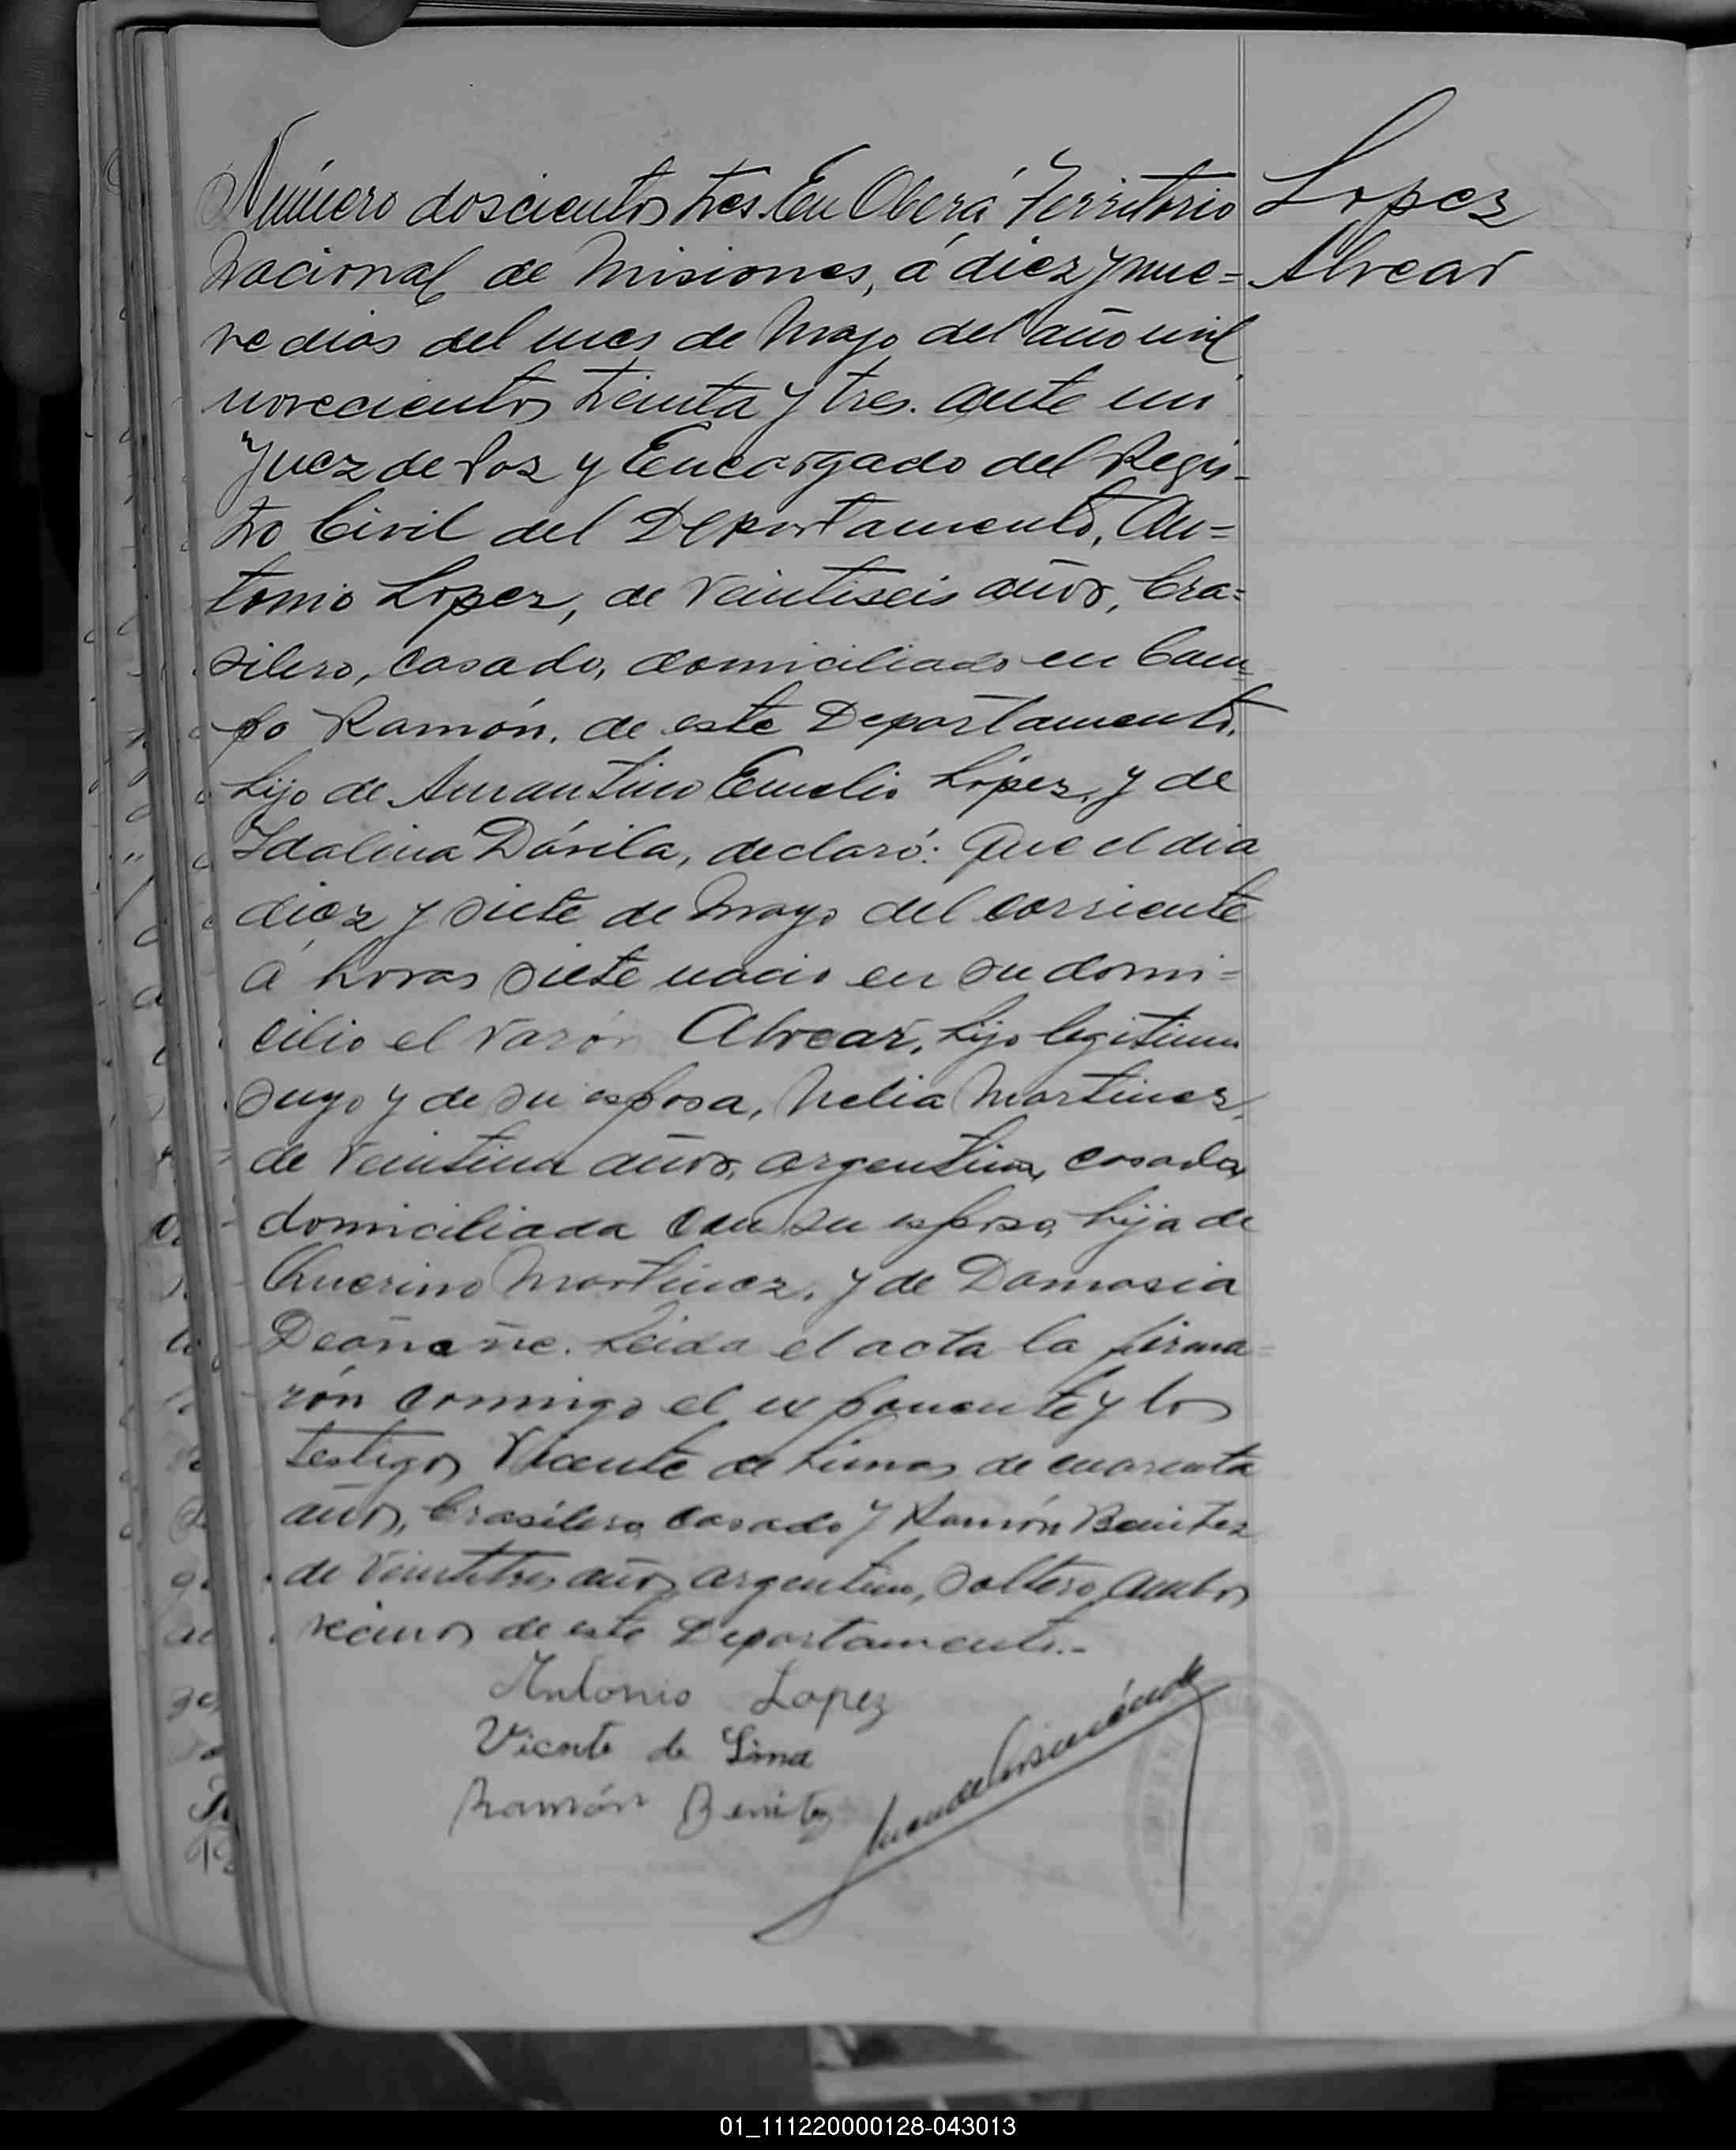 Número doscientos tres. En Oberá Territorio
Nacional de Misiones, á diez y nue=
ve dias del mes de Mayo del año mil
novecientos treinta y tres. ante mi
Juez de Paz y Encargado del Regis-
tro Civil del Departamento, An=
tonio Lopez, de veintiseis años, bra=
silero, casado, domiciliado en Cam=
po Ramón, de este Departamento,
hijo de Amantino Emelio López, y de
Idalina Dávila, declaró: Que el dia
diez y siete de Mayo del corriente
á horas siete nacio en su domi=
cilio el varón Alvear, hijo legitimo
suyo y de su esposa, Nelia Martinez,
de veintiun años, argentina, casada,
domiciliada con su esposo, hija de
Querino Martinez, y de Damasia
Leida el acta la firma=
rón conmigo el exponente y los
testigos Vicente de Lima, de cuarenta
años, brasilero, casado y Ramón Benitez
de veintitres años, argentino, soltero, ambos
vecinos de este Departamento.-
Antonio Lopez
Vicente de Lima
Ramón Benitez
Lopez
Alvear
01_111220000128-043013